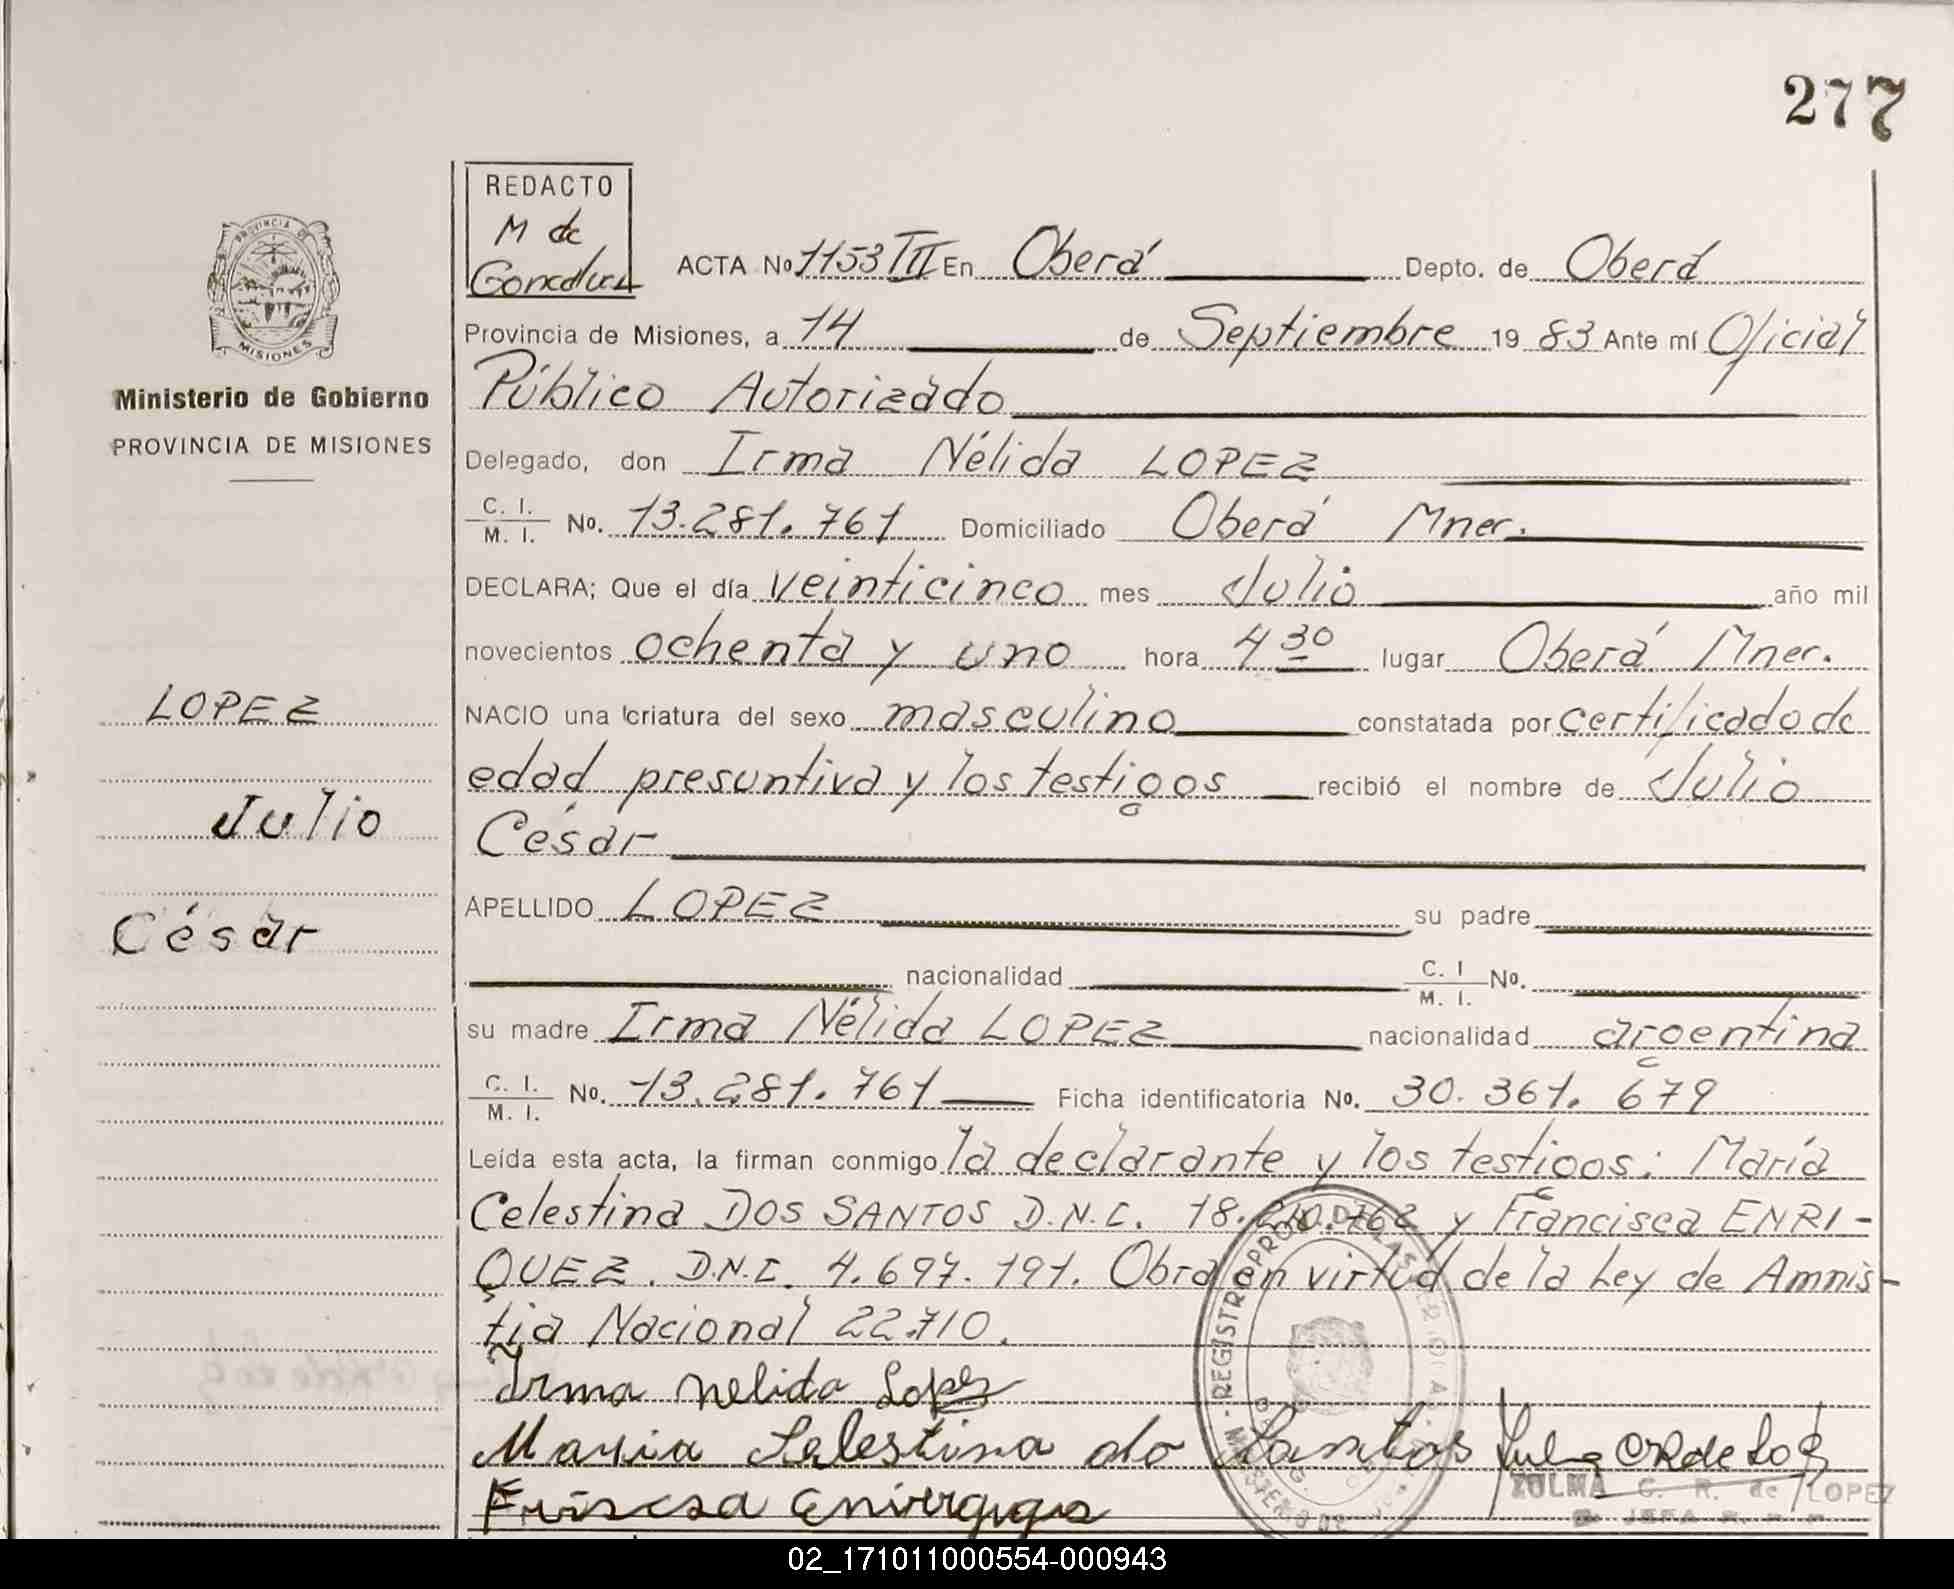 277
REDACTO
M de
PROVINCIA DE
MISIONES
ACTA No 1153 III En Oberá Depto. de Oberá
Provincia de Misiones, a 14 de Septiembre 19 83 Ante mí Oficial
Ministerio de Gobierno
Público Autorizado
PROVINCIA DE MISIONES
Delegado, don Irma Nélida LOPEZ
C. I.
M. I. No. 13.281.761 Domiciliado Oberá Mnes.
DECLARA; Que el día veinticinco mes Julio año mil
novecientos ochenta y uno hora 4 30 lugar Oberá Mnes.
LOPEZ
NACIO una criatura del sexo masculino constatada por certificado de
edad presuntiva y los testigos recibió el nombre de Julio
Julio
César
APELLIDO LOPEZ su padre
César
nacionalidad C. I M. I. No.
su madre Irma Nélida LOPEZ nacionalidad argentina
C. I.
M. I. No. 13.281.761 Ficha identificatoria No. 30.361.679
Leída esta acta, la firman conmigo la declarante y los testigos: María
Celestina DOS SANTOS D.N.I. 18. 762 y Francisca ENRI-
QUEZ. D.N.I. 4.697.191. Obra en virtud de la Ley de Amnis-
tia Nacional 22.710.
Irma nelida Lopez
Maria Selestina do Santos
ZULMA C. R. de LOPEZ
JEFA
REGISTRO PROV. DE LAS
02_171011000554-000943